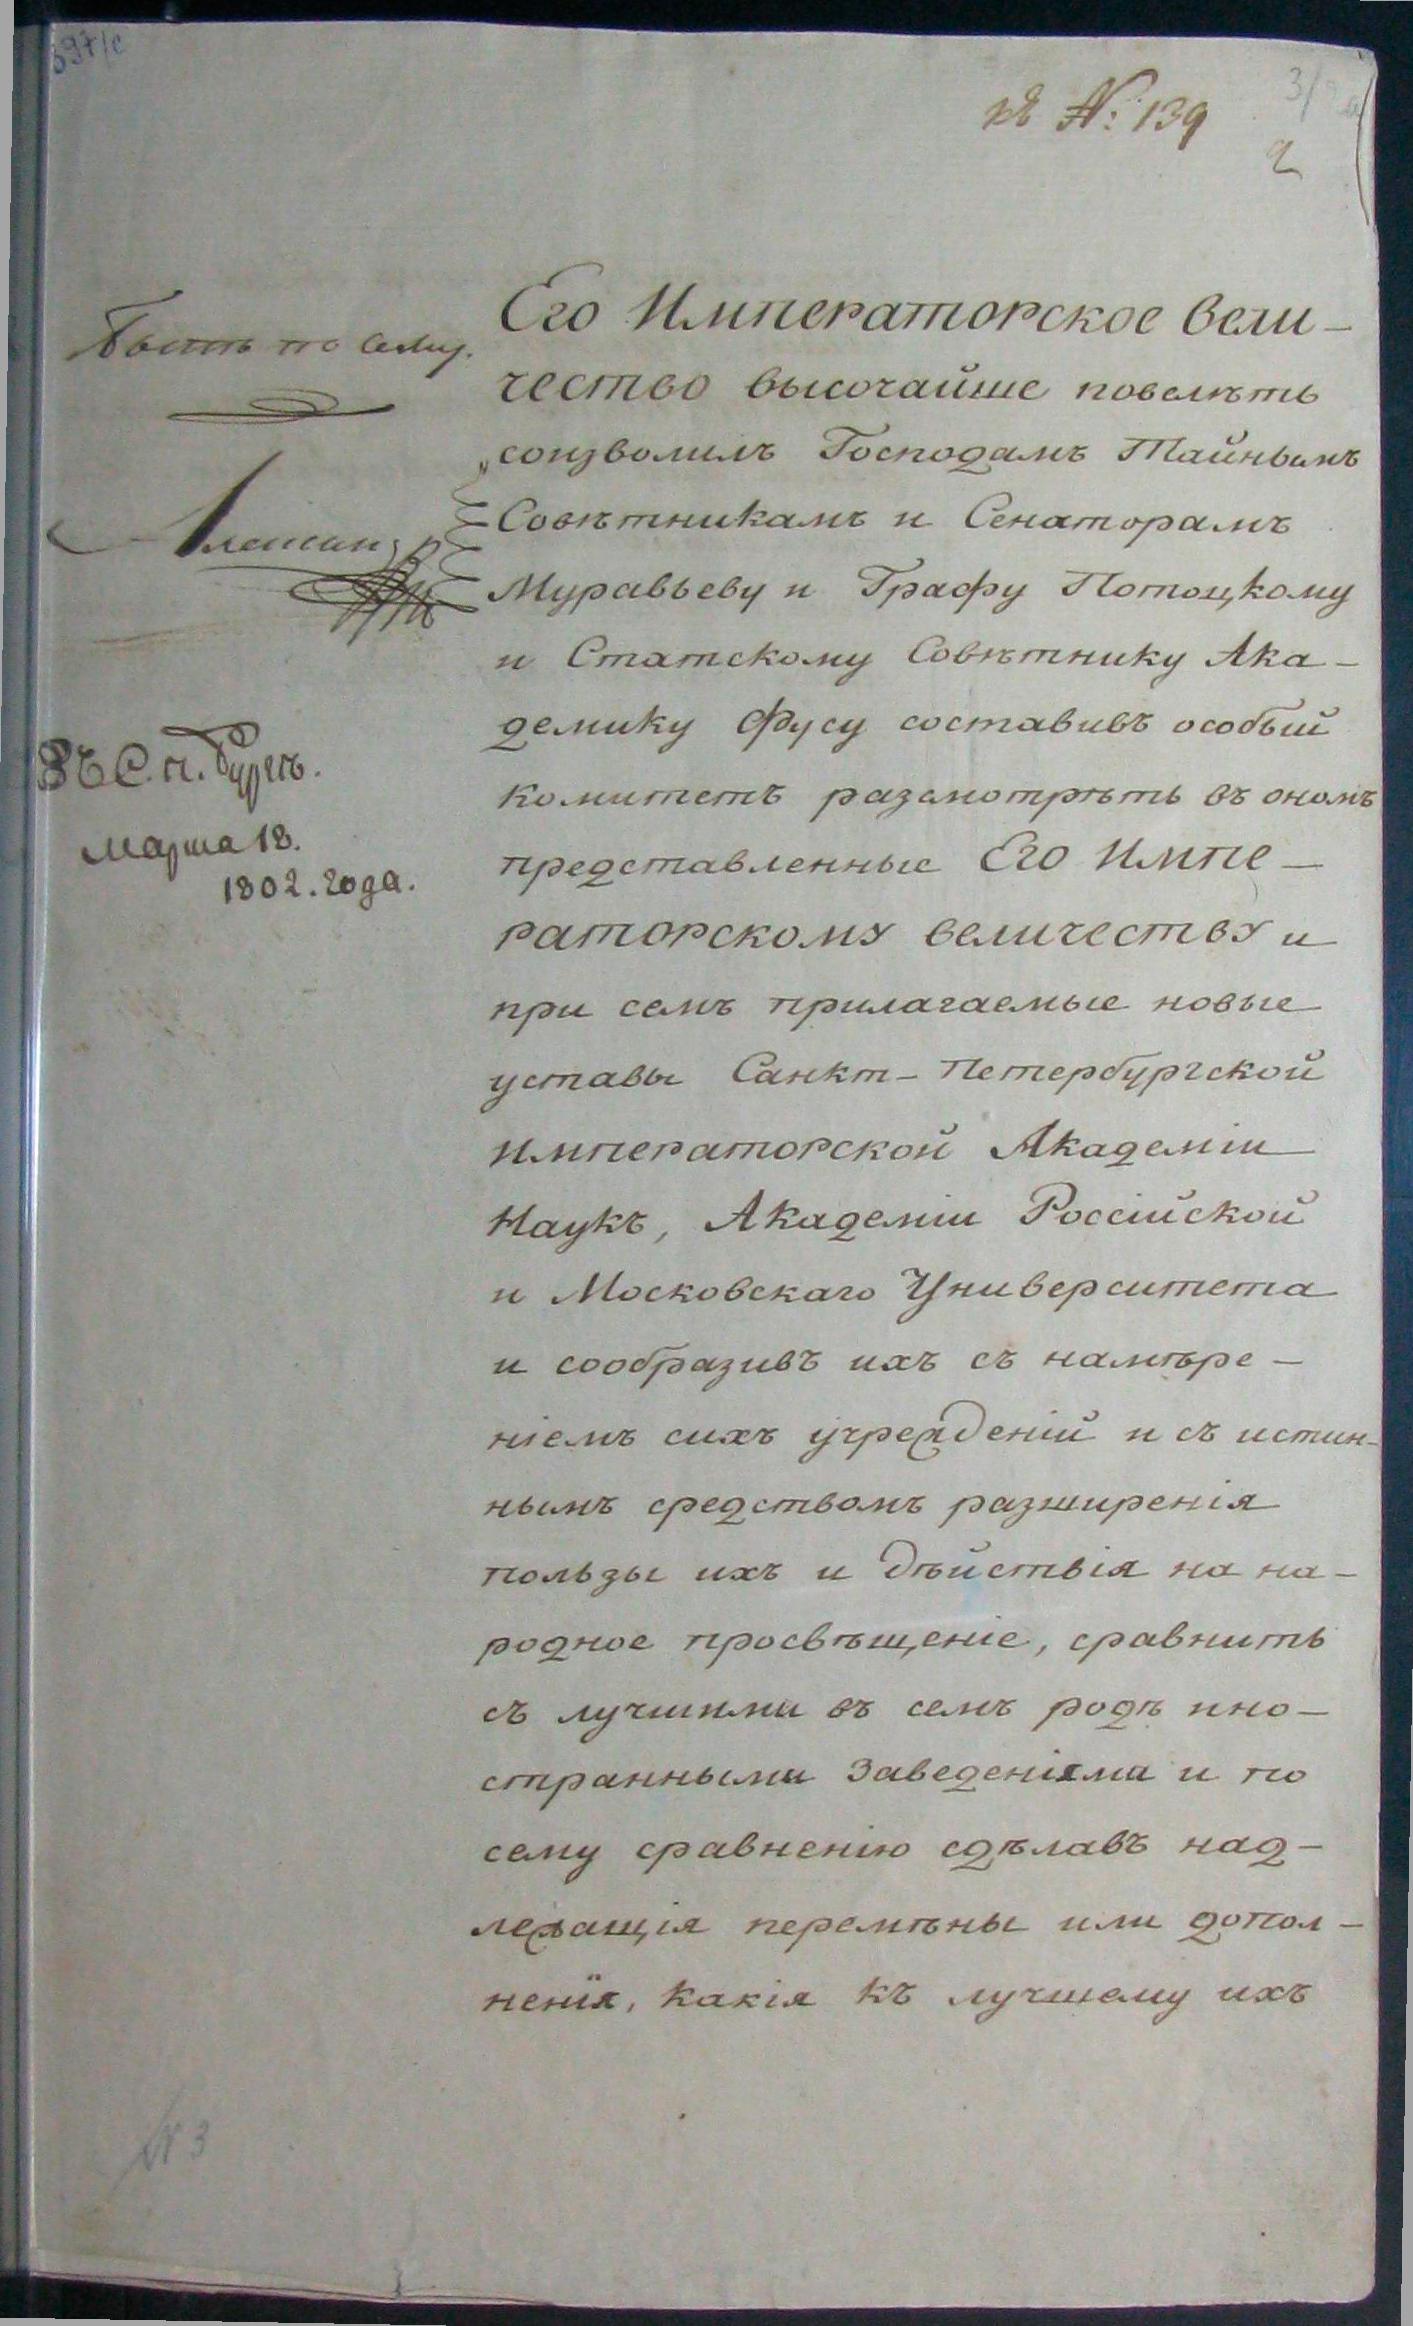 къ №: 139
2
Быть по сему.
Александръ
Въ С. п. бургѣ.
Марта 18.
1802. года.
Его Императорское Вели-
чество высочайше повелѣть
соизволилъ Господамъ Тайнымъ
Совѣтникамъ и Сенаторамъ
Муравьеву и Графу Потоцкому
и Статскому Совѣтнику Ака-
демику Фусу составивъ особый
комитетъ разсмотрѣть въ ономъ
представленные Его Импе-
раторскому Величеству и
при семъ прилагаемые новые
уставы Санкт-Петербургской
Императорской Академіи
Наукъ, Академіи Россійской
и Московскаго Университета
и сообразивъ ихъ съ намѣре-
ніемъ сихъ учрежденій и съ истин-
нымъ средствомъ разширенія
пользы ихъ и дѣйствія на на-
родное просвѣщеніе, сравнить
съ лучшими въ семъ родѣ ино-
странными заведеніями и по
сему сравненію сдѣлавъ над-
лежащія перемѣны или допол-
ненія, какія къ лучшему ихъ
№ 3